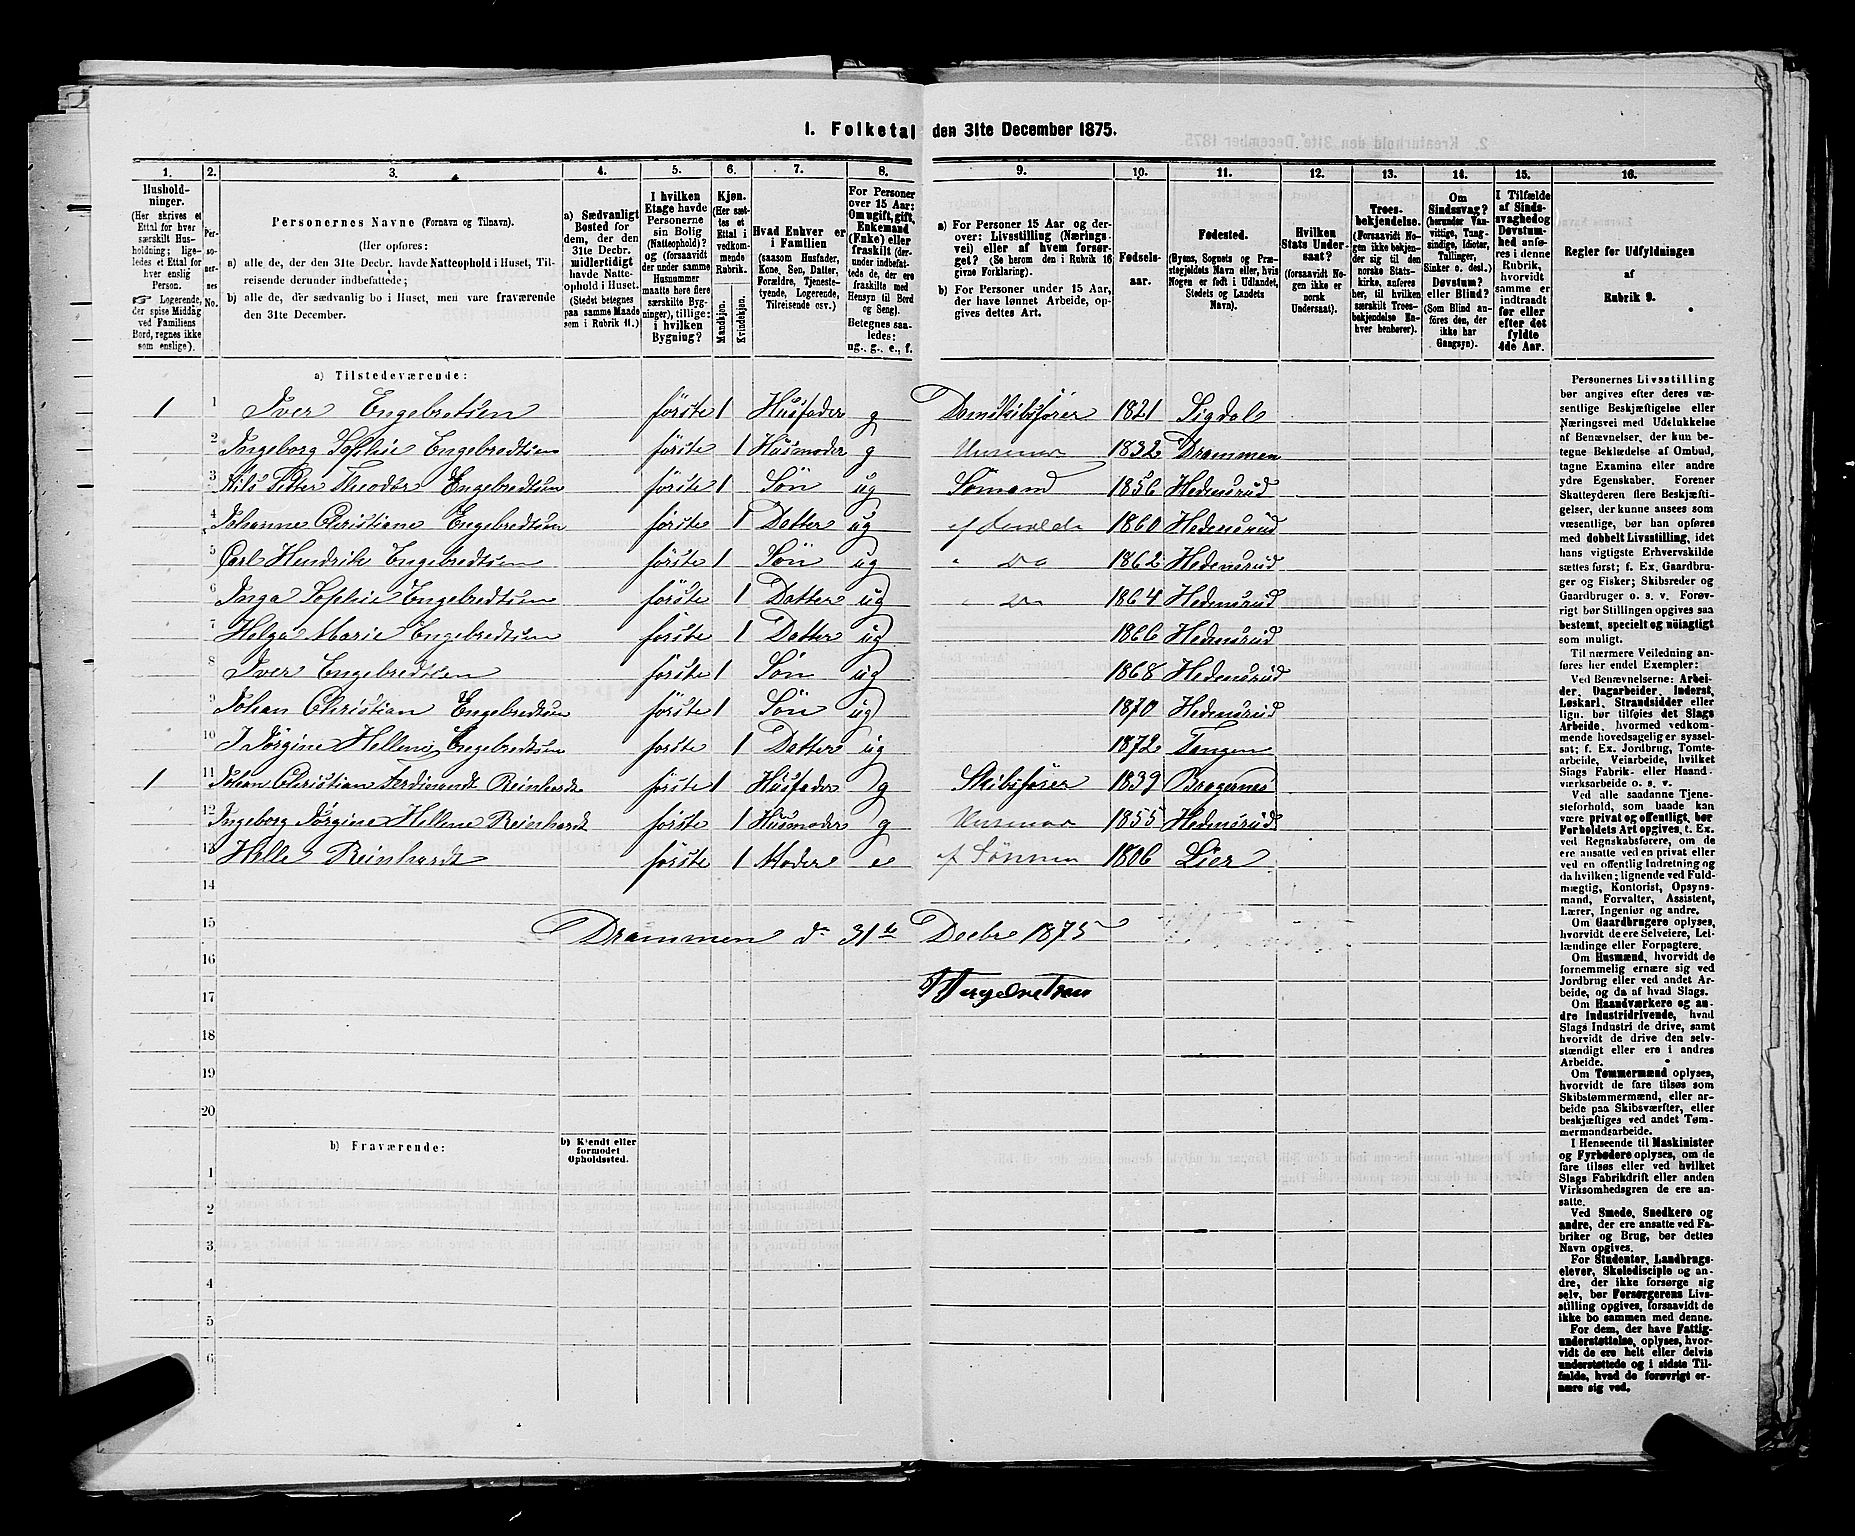 1. Folketal den 31te December 1875.
1. 2. 3. 4. 5. 6. 7. 8. 9. 10. 11. 12. 13. 14. 15. 16.
Hushold-
ninger.
(Her skrives et
Ettal for hver
særskilt Hus-
holdning; lige-
ledes et Ettal for
hver enslig
Person.
☞ Logerende,
der spise Middag
ved Familiens
Bord, regnes ikke
som enslige).
Per-
so-
ner-
nes
No.
Personernes Navne (Fornavn og Tilnavn).
(Her opføres:
a) alle de, der den 31te Decbr. havde Natteophold i Huset, Til-
reisende derunder indbefattede;
b) alle de, der sædvanlig bo i Huset, men vare fraværende
den 31te December.
a) Sædvanligt
Bosted for
dem, der den
31te Decbr.
midlertidigt
havde Natte-
ophold i Huset.
(Stedet betegnes
paa samme Maade
som i Rubrik 11.)
I hvilken
Etage havde
Personerne
sin Bolig
(Natteophold)?
og (forsaavidt
der under samme
Husnummer
maatte høre flere
særskilte Byg-
ninger), tillige:
i hvilken
Bygning?
Kjøn.
(Her sæt-
tes et
Ettal i
vedkom-
mende
Rubrik.
Mandkjøn.
Kvindekjøn.
Hvad Enhver er
i Familien
(saasom Husfader,
Kone, Søn, Datter,
Forældre, Tjeneste-
tyende, Logerende,
Tilreisende osv.)
For Personer
over 15 Aar:
Om ugift, gift,
Enkemand
(Enke) eller
fraskilt (der-
under indbefat-
tede de, der ere
fraskilte med
Hensyn til Bord
og Seng).
Betegnes saa-
ledes:
ug., g., e., f.
a) For Personer 15 Aar og der-
over: Livsstilling (Nærings-
vei) eller af hvem forsør-
get? (Se herom den i Rubrik 16
givne Forklaring).
b) For Personer under 15 Aar,
der have lønnet Arbeide, op-
gives dettes Art.
Fødsels-
aar.
Fødested.
(Byens, Sognets og Præ-
stegjeldets Navn eller, hvis
Nogen er født i Udlandet,
Stedets og Landets
Navn).
Hvilken
Stats Under-
saat?
(forsaavidt No-
gen ikke er
norsk
Undersaat).
Troes-
bekjendelse.
(Forsaavidt No-
gen ikke bekjen-
der sig til den
norske Stats-
kirke, anføres
her, til hvilken
særskilt Troes-
bekjendelse En-
hver henhører).
Om
Sindssvag?
(herunder Van-
vittige, Tung-
sindige, Idioter,
Tullinger,
Sinker o. desl.)
Døvstum?
eller Blind?
(Som Blind an-
føres den, der
ikke har
Gangsyn).
I Tilfælde
af Sinds-
svaghed og
Døvstum-
hed anfø-
res i denne
Rubrik,
hvorvidt
samme er
indtraadt
før eller
efter det
fyldte
4de Aar.
Regler for Udfyldningen
af
Rubrik 9.
a) Tilstedeværende:
1 1 Iver Engebretsen første 1 Husfader g 1821 Sigdal
2 Ingeborg Sophie Engebredtsen første 1 Husmoder g 1832 Drammen
3 Nils Petter Theodor Engebredtsen første 1 Søn ug Sømand 1856 Hedensrud
4 Johanne Christiane Engebredtsen første 1 Datter ug 1860 Hedensrud
5 Carl Hendrik Engebredtsen første 1 Søn ug " Do 1862 Hedensrud
6 Inga Sophie Engebredtsen første 1 Datter ug " Do 1864 Hedensrud
7 Helga Marie Engebredtsen første 1 Datter ug 1866 Hedensrud
8 Iver Engebredtsen første 1 Søn ug 1868 Hedensrud
9 Johan Christian Engebredtsen første 1 Søn ug 1870 Hedensrud
10 Jørgine Hellene Engebredtsen første 1 Datter ug 1872 Tangen
1 11 Johan Christian Ferdinandt Reinhardt første 1 Husfader g Skibsfører 1839 Bragernes
12 Ingeborg Jørgine Hellene Reinhardt første 1 Husmoder g 1855 Hedensrud
13 Helle Reinhardt første 1 Moder e af Sønnen 1806 Lier
14
15 Drammen d 31te Decbr 1875
16
17
18
19
20
b) Fraværende:
b) Kjendt eller
formodet
Opholdssted.
1
2
3
4
5
6
Personernes Livsstilling
bør angives efter deres væ-
sentlige Beskjæftigelse eller
Næringsvei med Udelukkelse
af Benævnelser, der kun be-
tegne Beklædelse af Ombud,
tagne Examina eller andre
ydre Egenskaber. Forener
Skatteyderen flere Beskjæfti-
gelser, der kunne ansees som
væsentlige, bør han opføres
med dobbelt Livsstilling, idet
hans vigtigste Erhvervskilde
sættes først; f. Ex. Gaardbru-
ger og Fisker; Skibsreder og
Gaardbruger o. s. v. Forøv-
rigt bør Stillingen opgives saa
bestemt, specielt og nöiagtigt
som muligt.
Til nærmere Veiledning an-
føres her endel Exempler:
Ved Benævnelserne: Arbei-
der, Dagarbeider, Inderst,
Løskarl, Strandsidder eller
lign. bør tilføies det Slags
Arbeide, hvormed vedkom-
mende hovedsagelig er syssel-
sat; f. Ex. Jordbrug, Tomte-
arbeide, Veiarbeide, hvilket
Slags Fabrik- eller Haand-
værksarbeide o. s. v.
Ved alle saadanne Tjene-
steforhold, som baade kan
være privat og offentligt, bør
Forholdets Art opgives, t. Ex.
ved Regnskabsførere, om de
ere ansatte ved en privat eller
ved en offentlig Indretning og
da hvilken; lignende ved Fuld-
mægtig, Kontorist, Opsyns-
mand, Forvalter, Assistent,
Lærer, Ingeniør og andre.
Om Gaardbrugere oplyses,
hvorvidt de ere Selveiere, Lei-
lændinge eller Forpagtere.
Om Husmænd, hvorvidt de
fornemmelig ernære sig ved
Jordbrug eller ved andet Ar-
beide, og da af hvad Slags.
Om Haandværkere og an-
dre industridrivende, hvad
Slags Industri de drive, samt
hvorvidt de drive den selv-
stændigt eller ere i andres
Arbeide.
Om Tømmermænd oplyses,
hvorvidt de fare tilsøs som
Skibstømmermænd, eller ar-
beide paa Skibsværfter, eller
beskjæftiges ved andet Tøm-
mermandsarbeide.
I Henseende til Maskinister
og Fyrbødere oplyses, om de
fare tilsøs eller ved hvilket
Slags Fabrikdrift eller anden
Virksomhedsgren de ere an-
satte.
Ved Smede, Snedkere og
andre, der ere ansatte ved Fa-
briker og Brug, bør dettes
Navn opgives.
For Studenter, Landbrugs-
elever, Skoledisciple og an-
dre, der ikke forsørge sig
selv, bør Forsørgerens Livs-
stilling opgives, forsaavidt de
ikke bo sammen med denne.
For dem, der have Fattig-
understøttelse, oplyses, hvor-
vidt de ere helt eller delvis
understøttede og i sidste Til-
fælde, hvad de forøvrigt er-
nære sig ved.